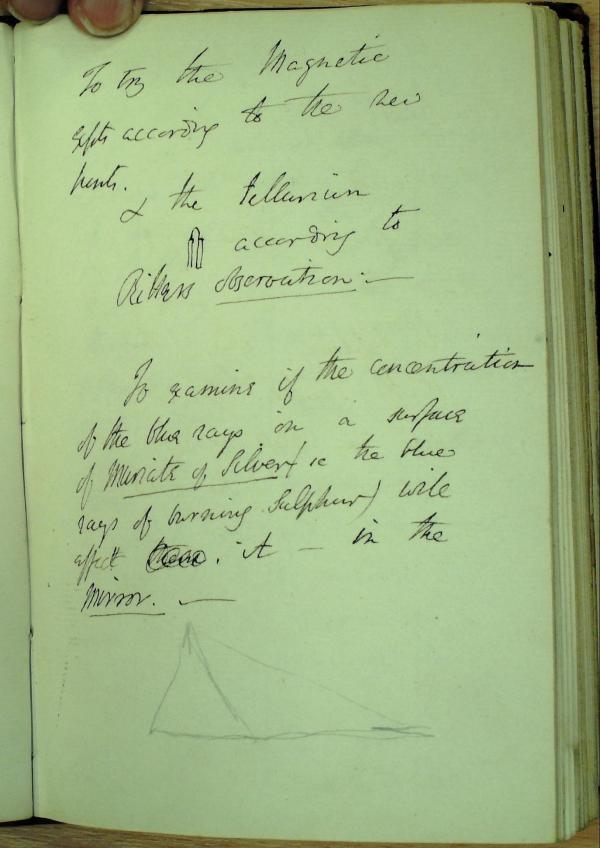 To try the Magnetic
Expts according to the new
hints.
& the tellurium
according to
Ritters observation. —
To examine if the concentration
of the blue rays on a surface
of Muriate of Silver (ie the blue
rays of burning Sulphur) will
effect it — in the
Mirror. —